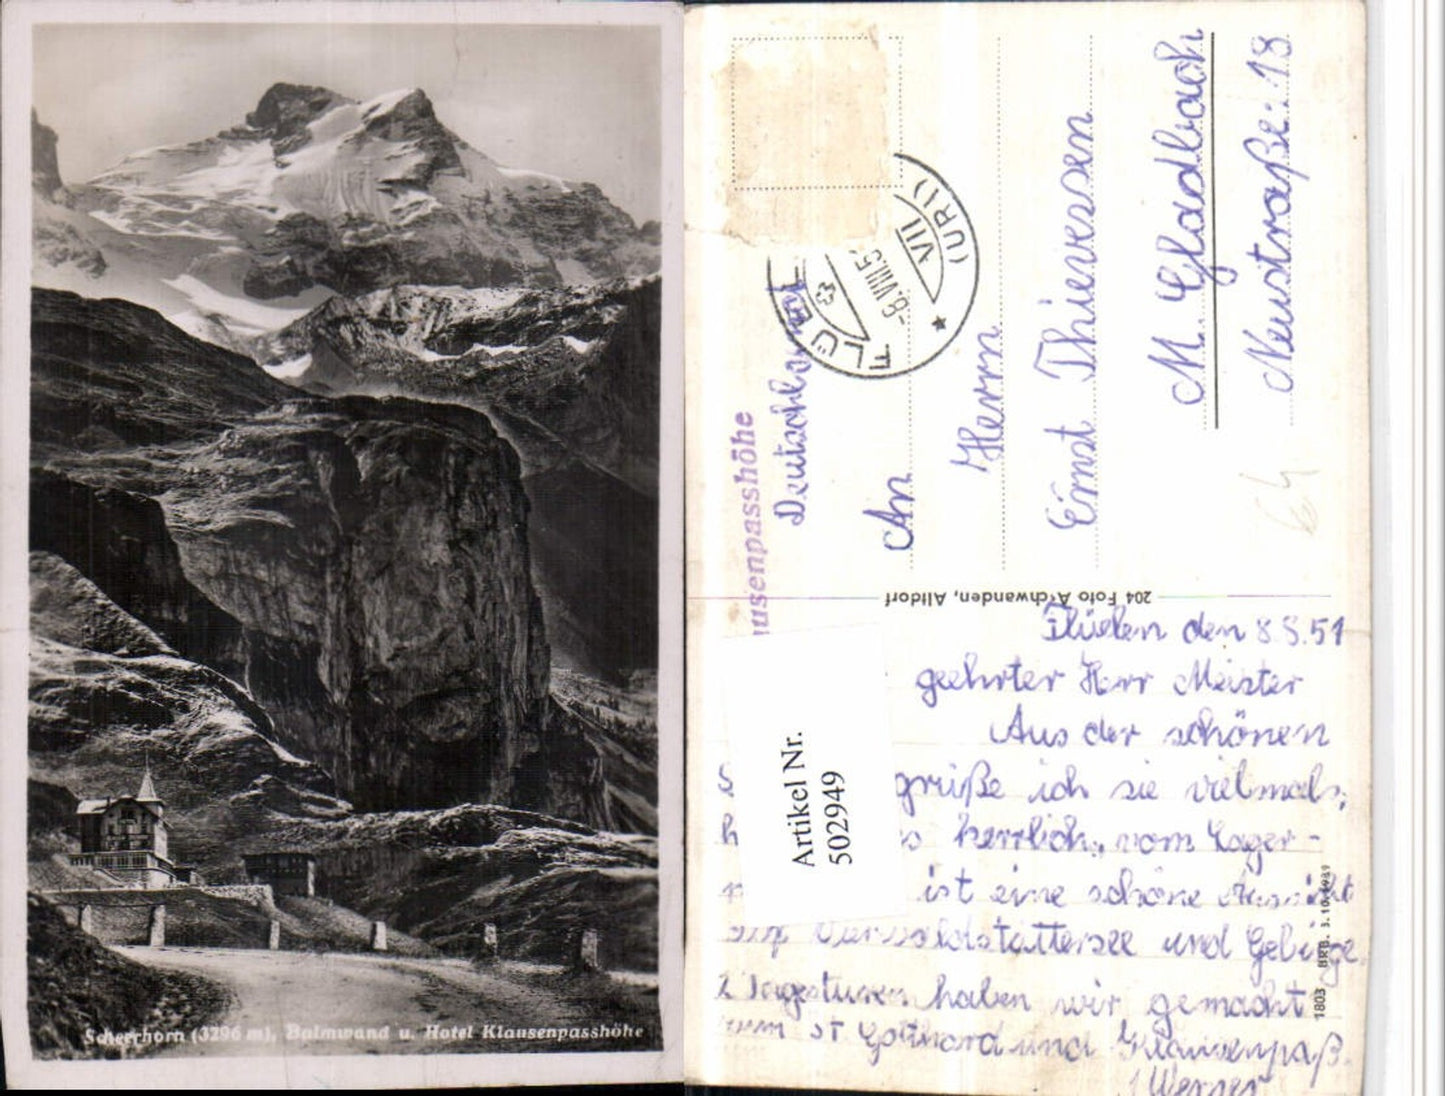 Scheerhorn (3296 m), Balmwand u. Hotel Klausenpasshöhe
usenpasshöhe
Deutschland
FLÜ
-8.VIII.5
VII
(URI)
An
Herrn
Ernst Thievesen
M. Gladbach
Neustraße: 18
64
204 Foto Aschwanden, Altdorf
Flüelen den 8.8.51
geehrter Herr Meister
Aus der schönen
S grüße ich sie vielmals,
h s herrlich, vom Lager-
ist eine schöne Aussicht
auf Vierwaldstättersee und Gebirge
2 Tagesturen haben wir gemacht
zum ST Gotthard und Klausenpaß.
Werner
Artikel Nr.
5029949
1803 BRB. 3.10.1939